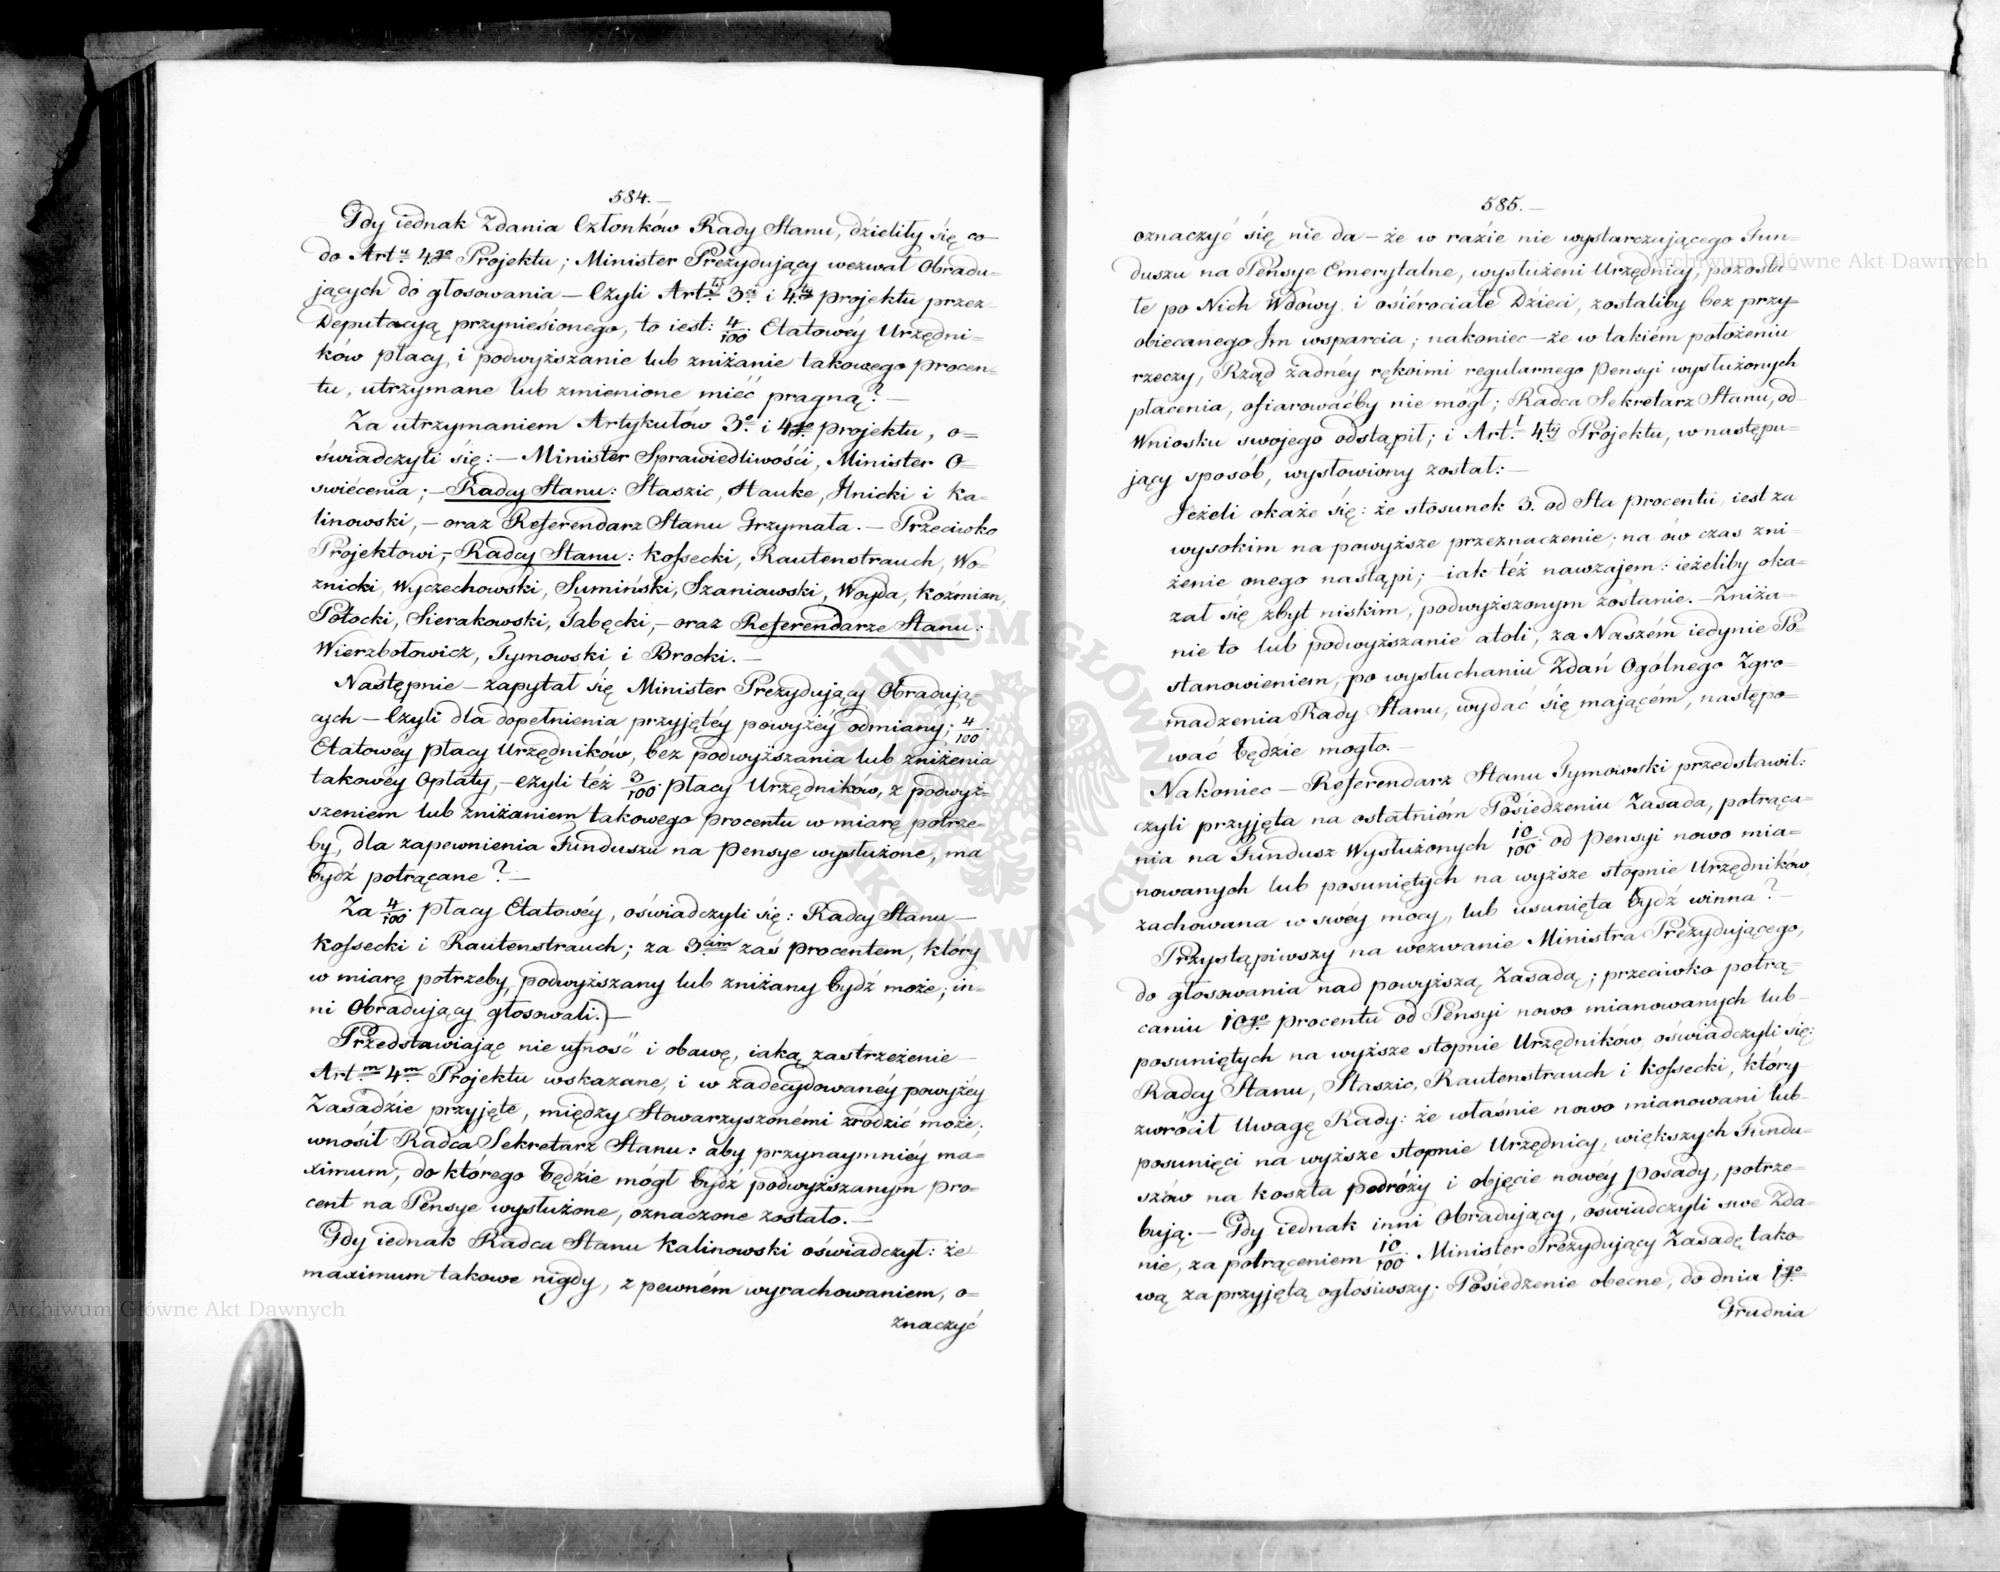 584.—
Gdy iednak Zdania Członków Rady Stanu, dzieliły się co—
do Art.u 4.go Projektu; Minister Prezydujący wezwał Obradu=
jących do głosowania — Czyli Art.ły 3.ci i 4.ty projektu przez—
Deputacyą przyniesionego, to iest: 4/100. Etatowéy Urzędni=
ków płacy, i podwyższanie lub zniżanie takowego procen=
tu, utrzymane lub zmienione mieć pragną? —
Za utrzymaniem Artykułów 3.o i 4.go projektu, o=
świadczyli się: — Minister Sprawiedliwości, Minister O=
swiécenia; — Radcy Stanu: Staszic, Hauke, Jlnicki i Ka=
linowski, — oraz Referendarz Stanu Grzymała. — Przeciwko
Projektowi, — Radcy Stanu: Kossecki, Rautenstrauch, Wo=
znicki, Wyczechowski, Sumiński, Szaniawski, Woyda, Koźmian,
Potocki, Sierakowski, Jabęcki, — oraz Referendarze Stanu:
Wierzbołowicz, Tymowski i Brocki. —
Następnie — zapytał się Minister Prezydujący Obradują=
cych — Czyli dla dopełnienia przyjętéy powyżéy odmiany; 4/100.
Etatowéy płacy Urzędników, bez podwyższania lub zniżenia
takowéy Opłaty, — czyli téż 3/100. płacy Urzędników, z podwyż=
szeniem lub zniżaniem takowego procentu w miarę potrze=
by, dla zapewnienia Funduszu na Pensye wysłużone, ma
bydź potrącane? —
Za 4/100. płacy Etatowéy, oświadczyli się: Radcy Stanu —
Kossecki i Rautenstrauch; za 3.cim zaś procentem, który
w miarę potrzeby, podwyższany lub zniżany bydź może; in=
ni Obradujący głosowali.) —
Przedstawiając nie ufność i obawę, iaką zastrzeżenie —
Art.m 4.m Projektu wskazane, i w zadecydowanéy powyżéy
Zasadzie przyjęte, między Stowarzyszonémi zrodzić może;
wnosił Radca Sekretarz Stanu: aby przynaymniéy ma=
ximum, do którego będzie mógł bydź podwyższanym pro=
cent na Pensye wysłużone, oznaczone zostało. —
Gdy iednak Radca Stanu Kalinowski oświadczył: że
maximum takowe nigdy, z pewném wyrachowaniem, o=
znaczyć
585.—
oznaczyć się nie da — że w razie nie wystarczającego Fun=
duszu na Pensye Emerytalne, wysłużeni Urzędnicy, pozosta=
łe po Nich Wdowy i osiérociałe Dzieci, zostaliby bez przy=
obiecanego Jm wsparcia; nakoniec — że w takiém położeniu
rzeczy, Rząd żadnéy rękoimi regularnego Pensyi wysłużonych
płacenia, ofiarowaćby nie mógł; Radca Sekretarz Stanu, od=
Wniosku swojego odstąpił; i Art.ł 4.ty Projektu, w następu=
jący sposób, wysłowiony został: —
Jeżeli okaże się: że stosunek 3. od Sta procentu, iest za
wysokim na powyższe przeznaczenie; na ów czas zni=
żenie onego nastąpi; — iak téż nawzajem: ieżeliby oka=
zał się zbyt niskim, podwyższonym zostanie. — Zniża=
nie to lub podwyższanie atoli, za Naszém iedynie Po=
stanowieniem, po wysłuchaniu Zdań Ogólnego Zgro=
madzenia Rady Stanu, wydać się mającém, następo=
wać będzie mogło. —
Nakoniec — Referendarz Stanu Tymowski przedstawił:
czyli przyjęta na ostatniém Posiedzeniu Zasada, potrąca=
nia na Fundusz Wysłużonych 10/100. od Pensyi nowo mia=
nowanych lub posuniętych na wyższe stopnie Urzędników,
zachowana w swéy mocy, lub usunięta bydź winna? —
Przystąpiwszy na wezwanie Ministra Prezydującego,
do głosowania nad powyższą Zasadą; przeciwko potrą=
caniu 10.go procentu od Pensyi nowo mianowanych lub —
posuniętych na wyższe stopnie Urzędników, oświadczyli się:
Radcy Stanu, Staszic, Rautenstrauch i Kossecki, który
zwrócił Uwagę Rady: że właśnie nowo mianowani lub —
posunięci na wyższe stopnie Urzędnicy, większych Fundu=
szów na koszta podróży i objęcie nowéy Posady, potrze=
bują. — Gdy iednak inni Obradujący, oświadczyli swe Zda=
nie, za potrąceniem 10/100. Minister Prezydujący Zasadę tako=
wą za przyjętą ogłosiwszy; Posiedzenie obecne, do dnia 1.go
Grudnia
Archiwum Główne Akt Dawnych
Archiwum Główne Akt Dawnych
ARCHIWUM GŁÓWNE AKT DAWNYCH